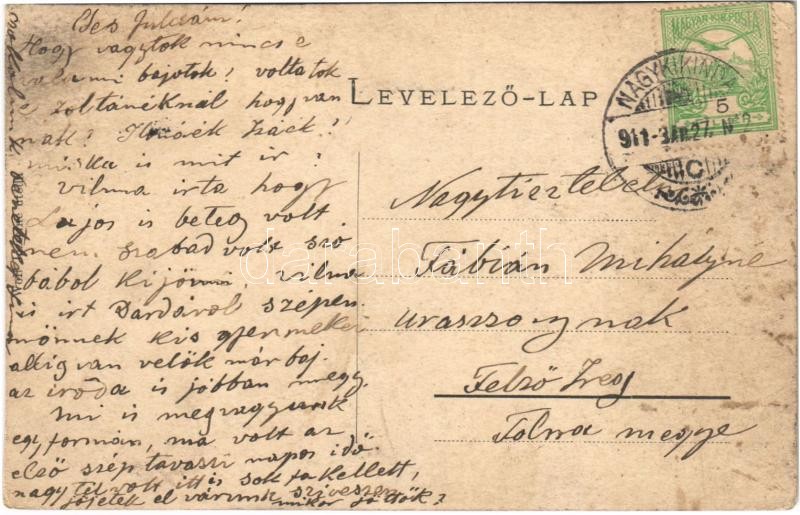 Édes Julcsám!
Hogy vagytok nincs e
valami bajotok? voltatok
e zoltánéknál hogy van
nak?
miska is mit ir?
Vilma irta hogy
Lajos is beteg volt
nem szabad volt szo
bábol kijönni, vilma
is irt Dardárol szépen
mönnek kis gyermekei
alkig van velök már baj.
az iroda is jobban megy.
mi is megvagyunk
egyformán, ma volt az
első szép tavaszi napos idő
nagy tél volt itt is sok fa kellett,
jöjetek el várunk szivessen
mikor jöttök?
LEVELEZŐ-LAP
MAGYAR KIR. POSTA
NAGYKIKINDA
5
911
27
C
Nagytiszteletü
Fábián Mihályne
uraszzonynak
Felső Ireg
Tolna megye
darabanth